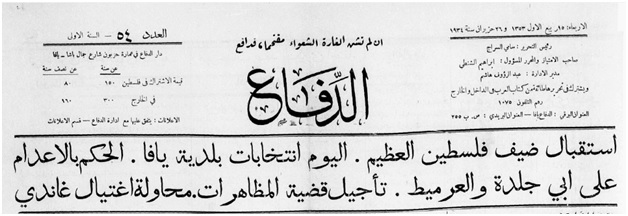 العدد ٥٤ — السنة الاولى
دار الدفاع في عمارة حزبون شارع جمال باشا – يافا
عن سنة عن نصف سنة
قيمة الاشتراك في فلسطين ١٥٠ ٨٠
في الخارج ٣٠٠ ١٦٠
الاعلانات : يتفق عليها مع ادارة الدفاع – قسم الاعلانات
ان لم نشن الغارة الشعواء مقتحما، فدافع
الدفاع
الاربعاء : ١٥ ربيع الاول ١٣٥٣ و ٢٦ حزيران سنة ١٩٣٤
رئيس التحرير : سامي السراج
صاحب الامتياز والمحرر المسؤول : ابراهيم الشنطي
مدير الادارة : عبد الرؤوف هاشم
ويشترك في تحريرها طائفة من كتاب العرب في الداخل والخارج
رقم التلفون ١٠٧٥
العنوان البرقي : الدفاع يافا – العنوان البريدي : ص . ب ٢٥٥
استقبال ضيف فلسطين العظيم . اليوم انتخابات بلدية يافا . الحكم بالاعدام
على ابي جلدة والعرميط . تأجيل قضية المظاهرات . محاولة اغتيال غاندي